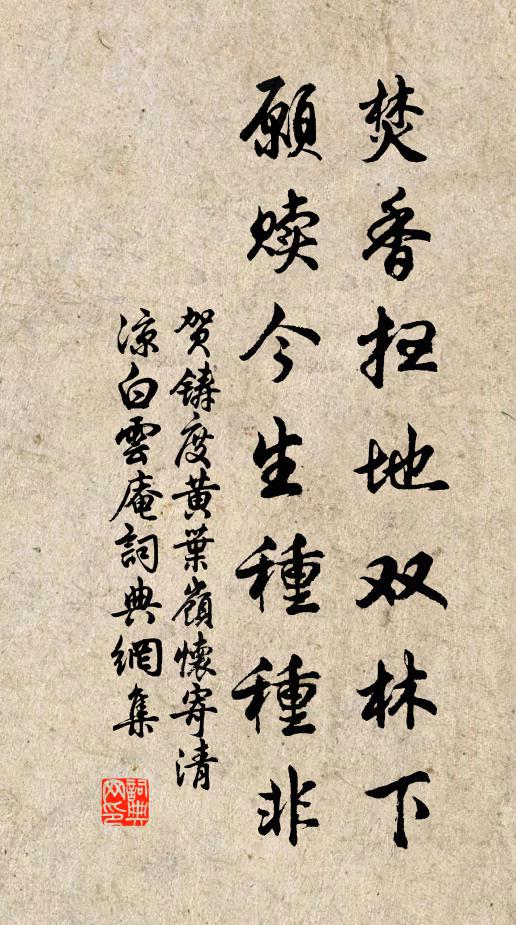 焚香扫地双林下
願赎今生種種非
贺鑄度黄葉嶺懷寄清
凉白雲庵詞典網集
詞典
网印